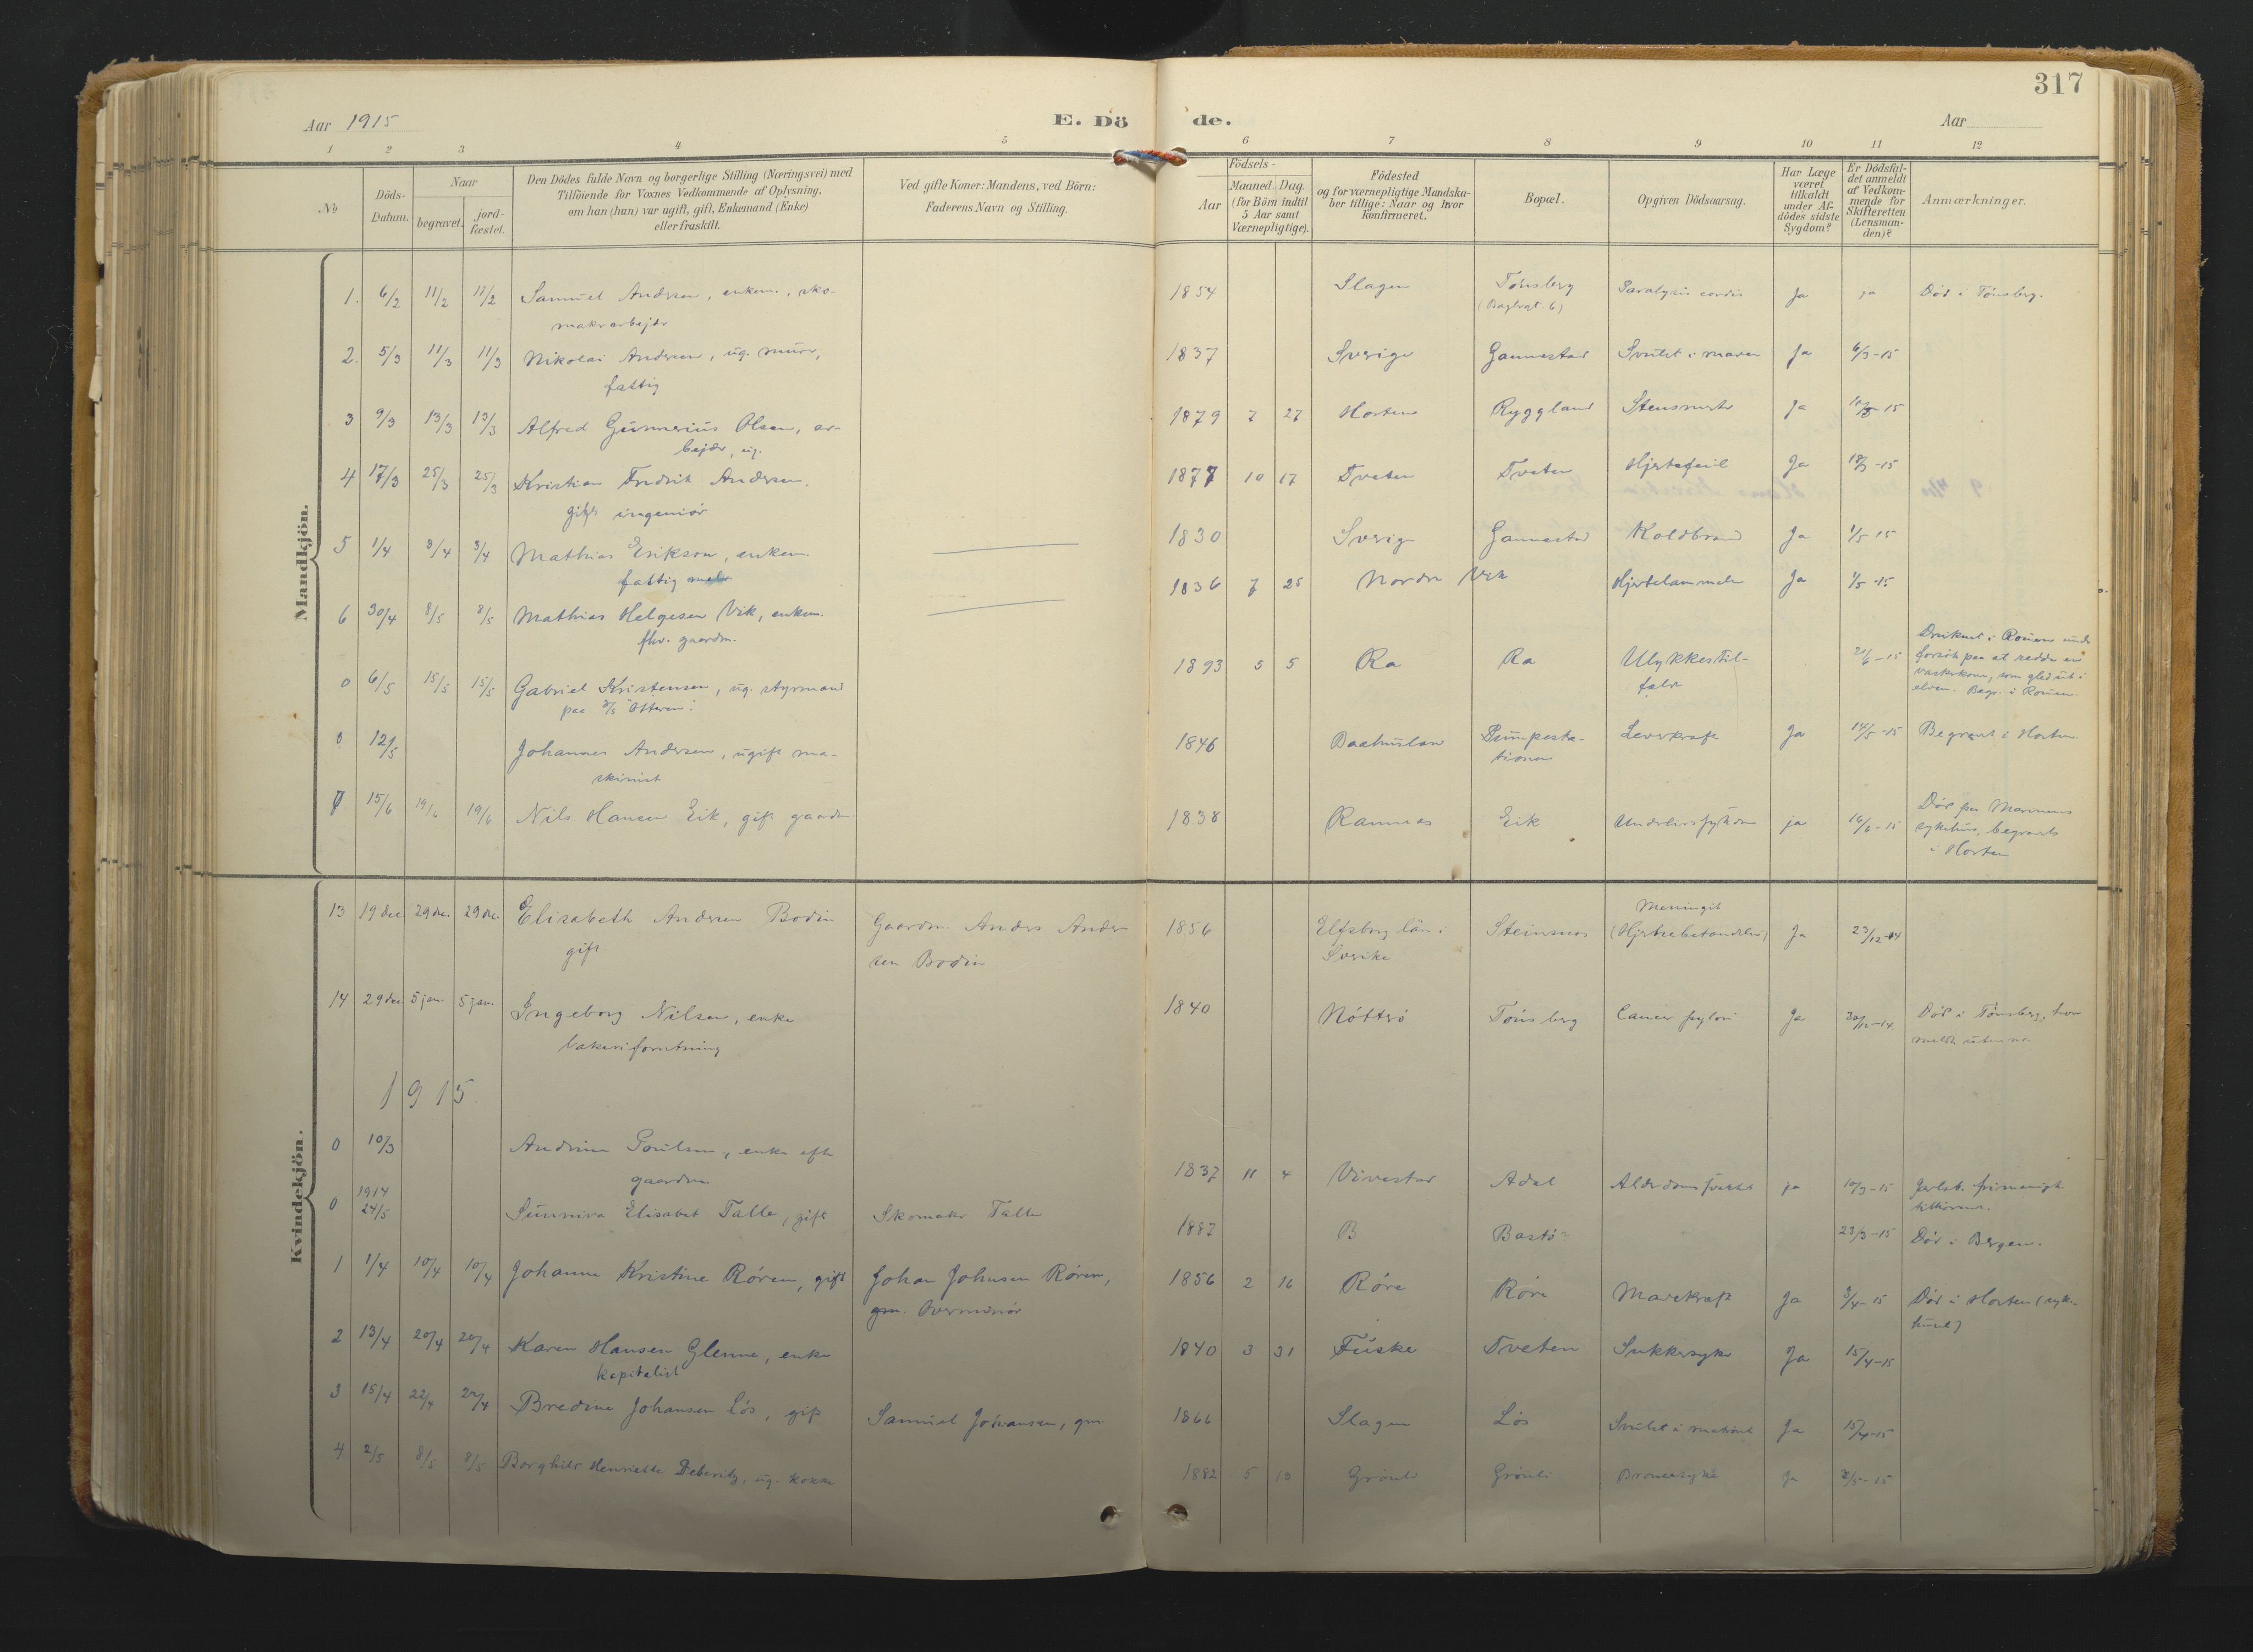 317
Aar 1915
E. Dö de.
Aar
1 2 3 4 5 6 7 8 9 10 11 12
No
Döds-Datum.
Naar
begravet.
jord-fæstet.
Den Dödes fulde Navn og borgerlige Stilling (Næringsvei) med
Tilföiende for Voxnes Vedkommende af Oplysning,
om han (hun) var ugift, gift, Enkemand (Enke)
eller fraskilt.
Ved gifte Koner: Mandens, ved Börn:
Faderens Navn og Stilling.
Födsels-
Aar
Maaned. Dag.
(for Börn indtil
5 Aar samt
Værnepligtige).
Födested
og for værnepligtige Mandska-
ber tillige: Naar og hvor
Konfirmeret.
Bopæl.
Opgiven Dödsaarsag.
Har Læge
været
tilkaldt
under Af-
dödes sidste
Sygdom?
Er Dödsfal-
det anmeldt
af Vedkom-
mende for
Skifteretten
(Lensman-
den)?
Anmærkninger.
Mandkjön.
1. 6/2 11/2 11/2 Samuel Andersen, enkem., sko- 1854 Slagen Tønsberg Paralysis cordis Ja ja Död i Tönsberg.
makerarbejder
2. 5/3 11/3 11/3 Nikolai Andersen, ug. murer, 1837 Sverige Gannestad Svulst i maven Ja 6/3-15
fattig
3 9/3 13/3 13/3 Alfred Gunnerius Olsen, ar- 1879 7 27 Horten Ryggland Ja
bejder, ug.
4 17/3 25/3 25/3 Kristian Fredrik Andersen. 1877 10 17 Tveten Tveten Hjertefeil Ja 18/3-15
gift ingeniör
5 1/4 3/4 3/4 Mathias Erikson, enkem. 1830 Sverige Gannestad Koldbrand Ja 1/5 15
fattig
6 30/4 8/5 8/5 Mathias Helgesen Vik, enkem. 1836 7 25 Nordre Vik Hjertelammelse Ja 1/5-15
fhv. gaardm.
0 6/5 15/5 15/5 Gabriel Kristensen, ug. styrmand 1893 5 5 Ra Ra Ulykkestil-
paa D/S "Otteren". felde
Druknet i Rouen under
forsök paa at redde en
vaskekone, som gled ut i
elven. Begr. i Rouen.
0 12/5 Johannes Andersen, ugift ma- 1846 Baahuslen Pumpesta- Leverkraft Ja 14/5-15 Begravet i Horten.
skinist tionen
7 15/6 19/6 19/6 Nils Hansen Eik, gift gaardm. 1838 Ramnes Eik Underlivssykdom ja 16/6-15 Död paa Marinens
sykehus, begravet
i Horten
Kvindekjön.
13 19 dec 29 dec. 29 dec. Elisabeth Andersen Bodin Gaardm. Anders Ander- 1856 Elfsborg län i Steinsnes Meningit Ja 23/12-14
gift sen Bodin Sverike (Hjernebetændelse)
14 29 dec 5 jan. 5 jan. Ingeborg Nilsen, enke 1840 Nötterö Tönsberg Cancer pylori Ja 30/12-14. Död i Tönsberg, hvor
bakeriforretning
1915
0 10/3 Andrine Poulsen, enke efter 1837 11 4 Vivestad Adal Alderdomssvakhet ja 10/3-15 Jarlsb. frimenigh.
gaardm. tilhörende.
0 1914 24/5 Sunniva Elisabet Talle, gift Skomaker Talle 1887 B Bastö 23/3-15 Död i Bergen.
1 1/4 10/4 10/4 Johanne Kristine Rören, gift Johan Johnsen Rören, 1856 2 16 Röre Röre Mavekraft Ja 3/4-15 Död i Horten (syke-
gm. huset)
2 13/4 20/4 20/4 Karen Hansen Glenne, enke 1840 3 31 Fuske Tveten Sukkersyke Ja 15/4-15
kapitalist
3 15/4 22/4 22/4 Bredine Johansen Lös, gift Samuel Johansen, gm. 1866 Slagen Lös Svulst i Ja 15/4-15
4 2/5 8/5 8/5 Borghild Henriette Deberitz, ug. kokke 1882 5 10 Grönli Grönli Ja 2/5-15